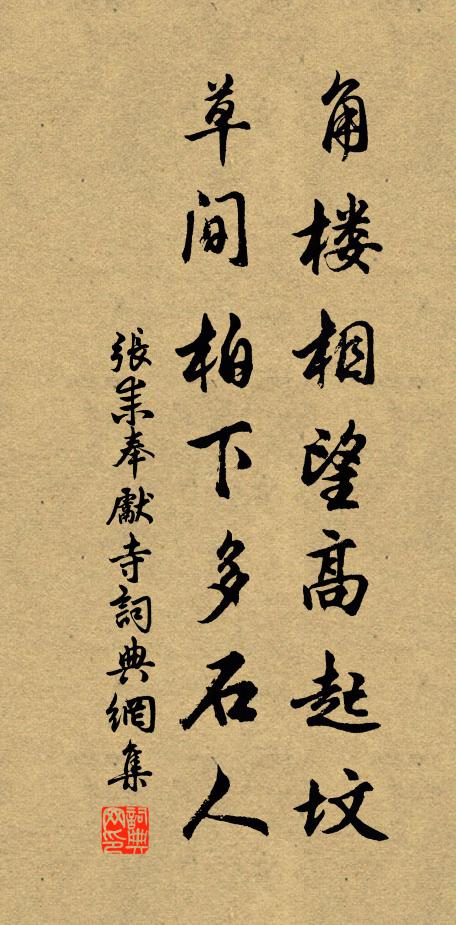 角楼相望高起坟
草间柏下多石人
張耒奉獻寺詞典網集
詞典網印